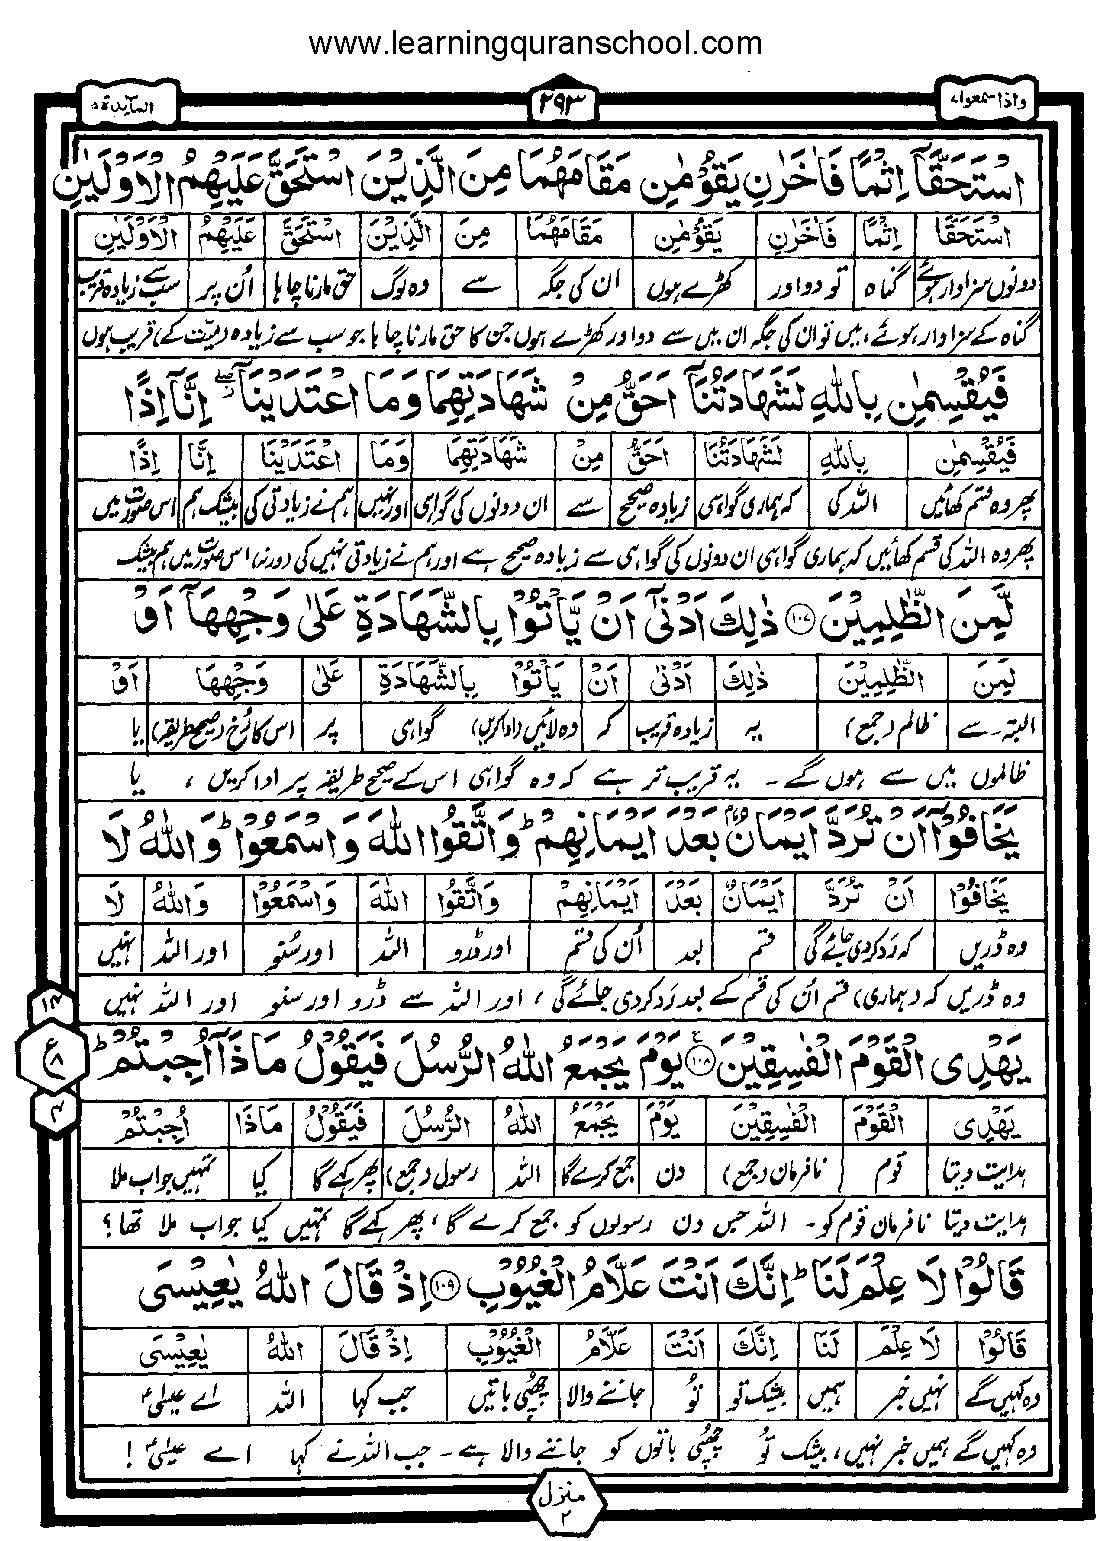 www.learningquranschool.com
واذا سمعوا ۷
۲۹۳
المآئدة ۵
اسْتَحَقَّآ اِثْمًا فَاٰخَرٰنِ يَقُوْمٰنِ مَقَامَهُمَا مِنَ الَّذِيْنَ اسْتَحَقَّ عَلَيْهِمُ الْاَوْلَيٰنِ
اسْتَحَقَّا اِثْمًا فَاٰخَرٰنِ يَقُوْمٰنِ مَقَامَهُمَا مِنَ الَّذِيْنَ اسْتَحَقَّ عَلَيْهِمُ الْاَوْلَيٰنِ
دونوں سزاوار ہوئے گناہ تو دو اور کھڑے ہوں ان کی جگہ سے وہ لوگ حق مارنا چاہا اُن پر سب سے زیادہ قریب
گناہ کے سزاوار ہوئے ہیں تو ان کی جگہ ان میں سے دو اور کھڑے ہوں جن کا حق مارنا چاہا جو سب سے زیادہ (میّت کے) قریب ہوں
فَيُقْسِمٰنِ بِاللّٰهِ لَشَهَادَتُنَآ اَحَقُّ مِنْ شَهَادَتِهِمَا وَمَا اعْتَدَيْنَآ ۖ اِنَّآ اِذًا
فَيُقْسِمٰنِ بِاللّٰهِ لَشَهَادَتُنَا اَحَقُّ مِنْ شَهَادَتِهِمَا وَمَا اعْتَدَيْنَا اِنَّا اِذًا
پھر وہ قسم کھائیں اللہ کی کہ ہماری گواہی زیادہ صحیح سے ان دونوں کی گواہی اور نہیں ہم نے زیادتی کی بیشک ہم اس صورت میں
پھر وہ اللہ کی قسم کھائیں کہ ہماری گواہی ان دونوں کی گواہی سے زیادہ صحیح ہے اور ہم نے زیادتی نہیں کی (ورنہ) اس صورت میں ہم بیشک
لَّمِنَ الظّٰلِمِيْنَ ۝۱۰۷ ذٰلِكَ اَدْنٰٓى اَنْ يَّاْتُوْا بِالشَّهَادَةِ عَلٰى وَجْهِهَآ اَوْ
لَمِنَ الظّٰلِمِيْنَ ذٰلِكَ اَدْنٰى اَنْ يَاْتُوْا بِالشَّهَادَةِ عَلٰى وَجْهِهَا اَوْ
البتہ ۔ سے ظالم (جمع) یہ زیادہ قریب کہ وہ لائیں (ادا کریں) گواہی پر اس کا رُخ (صحیح طریقہ) یا
ظالموں میں سے ہوں گے ۔ یہ قریب تر ہے کہ وہ گواہی اس کے صحیح طریقہ پر ادا کریں ، یا
يَخَافُوْٓا اَنْ تُرَدَّ اَيْمَانٌۢ بَعْدَ اَيْمَانِهِمْ ۭ وَاتَّقُوا اللّٰهَ وَاسْمَعُوْا ۭ وَاللّٰهُ لَا
يَخَافُوْٓا اَنْ تُرَدَّ اَيْمَانٌ بَعْدَ اَيْمَانِهِمْ وَاتَّقُوا اللّٰهَ وَاسْمَعُوْا وَاللّٰهُ لَا
وہ ڈریں کہ رد کر دی جائے گی قسم بعد اُن کی قسم اور ڈرو اللہ اور سُنو اور اللہ نہیں
وہ ڈریں کہ (ہماری) قسم اُن کی قسم کے بعد رد کر دی جائے گی ، اور اللہ سے ڈرو اور سنو اور اللہ نہیں
۱۴
ع ۸
۴
يَهْدِى الْقَوْمَ الْفٰسِقِيْنَ ۝۱۰۸ يَوْمَ يَجْمَعُ اللّٰهُ الرُّسُلَ فَيَقُوْلُ مَاذَآ اُجِبْتُمْ ۭ
يَهْدِى الْقَوْمَ الْفٰسِقِيْنَ يَوْمَ يَجْمَعُ اللّٰهُ الرُّسُلَ فَيَقُوْلُ مَاذَا اُجِبْتُمْ
ہدایت دیتا قوم نافرمان (جمع) دن جمع کرے گا اللہ رسول (جمع) پھر کہے گا کیا تمہیں جواب ملا
ہدایت دیتا نافرمان قوم کو ۔ اللہ جس دن رسولوں کو جمع کرے گا ، پھر کہے گا تمہیں کیا جواب ملا تھا ؟
قَالُوْا لَا عِلْمَ لَنَا ۭ اِنَّكَ اَنْتَ عَلَّامُ الْغُيُوْبِ ۝۱۰۹ اِذْ قَالَ اللّٰهُ يٰعِيْسَى
قَالُوْا لَا عِلْمَ لَنَا اِنَّكَ اَنْتَ عَلَّامُ الْغُيُوْبِ اِذْ قَالَ اللّٰهُ يٰعِيْسَى
وہ کہیں گے نہیں خبر ہمیں بیشک تو تُو جاننے والا چھپی باتیں جب کہا اللہ اے عیسٰیؑ
وہ کہیں گے ہمیں خبر نہیں ، بیشک تُو چھپی باتوں کو جاننے والا ہے ۔ جب اللہ نے کہا اے عیسٰیؑ !
منزل ۲